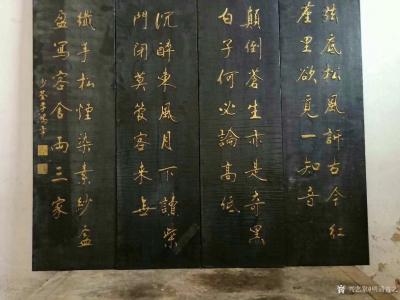 弦底松風訴古今紅
塵里欲覓一知音
顛倒蒼生亦是奇黑
白子何必論高低
沉醉東風月下讀柴
門閉莫管客來無
纖手松煙染素紗盈
盈寫容舍兩三家